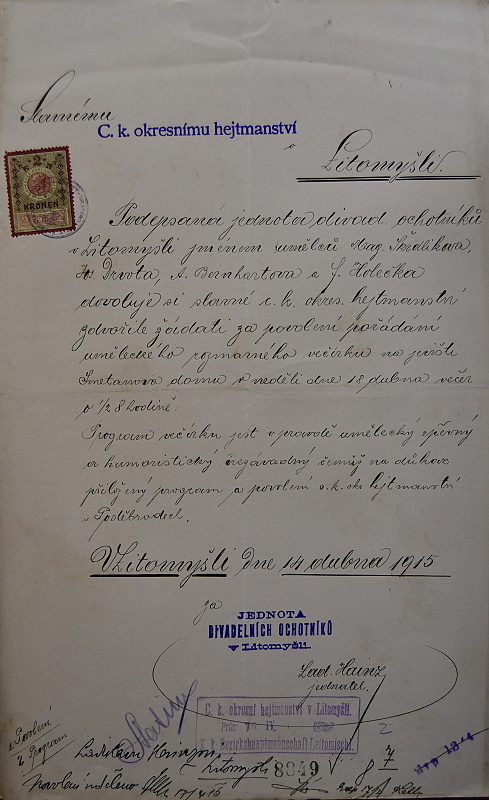 Slavnému
C. k. okresnímu hejtmanství
v
Litomyšli.
2
KRONEN
Podepsaná jednota divad. ochotníků
v Litomyšli jménem umělců Mag.
Drvota, A. Bernhartova a J. Holečka
dovoluje si slavné c. k. okres. hejtmanství
zdvořile žádati za povolení pořádání
uměleckého rozmarného večírku na jevišti
Smetanova domu v neděli dne 18 dubna večer
o ½ 8 hodině.
Program večírku jest v pravdě umělecky zpěvný
a humoristický nezávadný čemuž na důkaz
přiložený program a povolení c. k. okr. hejtmanství
v Poděbradech.
V Litomyšli dne 14 dubna 1915
za
JEDNOTA
DIVADELNÍCH OCHOTNÍKŮ
v Litomyšli.
Lad. Hainz
jednatel.
C. k. okresní hejtmanství v Litomyšli.
IV.
K. k. Bezirkshauptmannschaft Leitomischl.
1 Povolení
2 Program
Ladislav
Litomyšl
8849
povolení uděleno 17/4 15